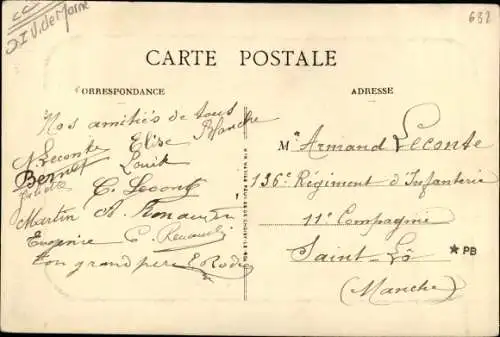 632
CARTE POSTALE
CORRESPONDANCE
ADRESSE
Nos amitiés de tous
Elise Blanche
N. Leconte
Bernet Louis
C. Leconte
Martin A. Renault
Eugénie C. Renault
ton grand père E Rodie
Mr Armand Leconte
136e Régiment d'Infanterie
11e Compagnie
Saint-Lô
(Manche)
★ PB